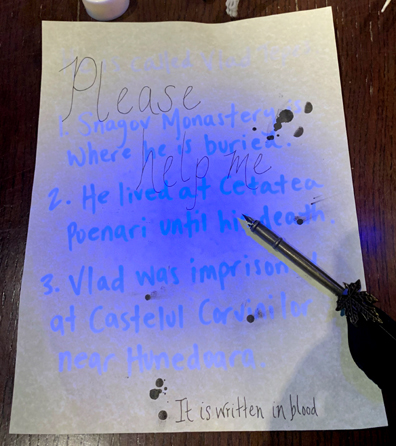 called Vlad
Please
1. Snagov Monastery is
where he is buried.
help me
2. He lived at Cetatea
Poenari until his death.
3. Vlad was imprisoned
at Castelul Corvinilor
near Hunedoara.
It is written in blood